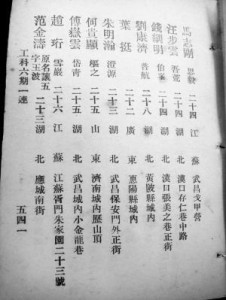 馬志剛　二十四　江　蘇　武昌戈甲營
汪步雲　吾霍　二十四　湖　北　漢口存仁巷中路
錢鶴明　二十　湖　北　漢口張美之巷正街
劉康濟　普航　二十八　湖　北　黃陂縣城內
葉　挺　二十二　廣　東　惠陽縣城內
朱明瀚　澄源　二十三　湖　北　武昌保安門外正街
何貴顯　樞之　二十五　山　東　濟南城內歷山頂
傅嶽雲　岱青　二十五　湖　北　武昌城內小金龍巷
趙　珩　雪巖　二十六　江　蘇　江蘇胥門朱家園二十三號
范金濤　原名讓五　字玉波　二十三　湖　北　應城南街
工科六期一連
五四一